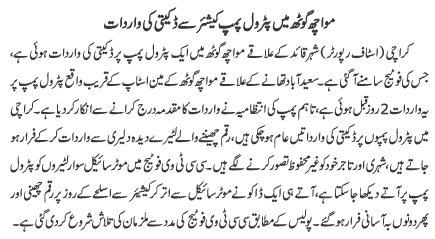 مواچھ گوٹھ میں پٹرول پمپ کیشئر سے ڈکیتی کی واردات
کراچی (اسٹاف رپورٹر) شہر قائد کے علاقے مواچھ گوٹھ میں ایک پٹرول پمپ پر ڈکیتی کی واردات ہوئی ہے،
جس کی فوٹیج سامنے آگئی ہے۔ سعید آباد تھانے کے علاقے مواچھ گوٹھ کے مین اسٹاپ کے قریب واقع پٹرول پمپ پر
یہ واردات 2 روز قبل ہوئی ہے، تاہم پمپ کی انتظامیہ نے واردات کا مقدمہ درج کرانے سے انکار کر دیا ہے۔ کراچی
میں پٹرول پمپوں پر ڈکیتی کی وارداتیں عام ہو چکی ہیں، رقم چھیننے والے لٹیرے دیدہ دلیری سے واردات کرکے فرار ہو
جاتے ہیں، شہری اور تاجر خود کو غیر محفوظ تصور کرنے لگے ہیں۔ سی سی ٹی وی فوٹیج میں موٹر سائیکل سوار لٹیروں کو پٹرول
پمپ پر آتے دیکھا جاسکتا ہے، آتے ہی ایک ڈاکو نے موٹر سائیکل سے اتر کر کیشیئر سے اسلحے کے زور پر رقم چھینی اور
پھر دونوں بہ آسانی فرار ہو گئے۔ پولیس کے مطابق سی سی ٹی وی فوٹیج کی مدد سے ملزمان کی تلاش شروع کر دی گئی ہے۔